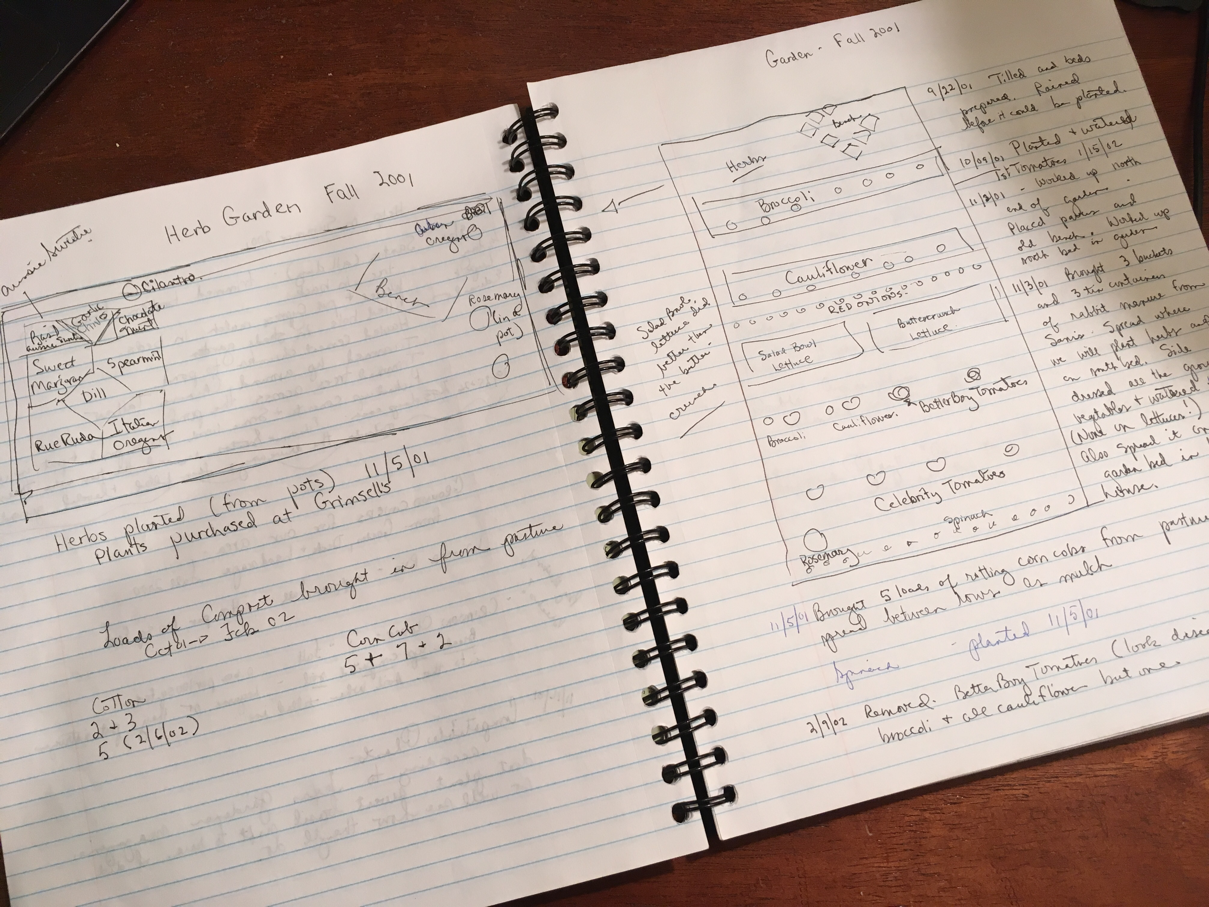 Herb Garden Fall 2001
Cilantro
Cuban
Oregano
Bench
Rosemary
(in
pot)
Basil
Garlic
Chives
Chocolate
Mint
Sweet
Marjoram
Spearmint
Dill
Rue Ruda
Italian
Oregano
Herbs planted (from pots) 11/5/01
Plants purchased at Grimsell's
Loads of Compost brought in from pasture
Oct 01 -> Feb 02
Corn Cob
5 + 7 + 2
Cotton
2 + 3
5 (2/6/02)
Garden - Fall 2001
Herbs
Bench
Broccoli
Cauliflower
RED ONIONS
Salad Bowl
Lettuce
Buttercrunch
Lettuce
Broccoli
Cauliflower
BetterBoy Tomatoes
Celebrity Tomatoes
Spinach
Rosemary
Salad Bowl
lettuce did
better than
the butter-
crunch
9/22/01 Tilled and beds
prepared. Rained
before it could be planted.
10/09/01 Planted + watered
1st Tomatoes 1/15/02
11/2/01 - Worked up north
end of garden.
Placed pavers and
old bench. Worked up
north bed in garden
11/3/01 Brought 3 buckets
and 3 containers
of rabbit manure from
Spread where
we will plant herbs and
on north bed. Side
dressed all the
vegetables + watered
(Not on lettuces!)
also spread it
garden bed in
house.
11/5/01 Brought 5 loads of rotting corn cobs from pasture
spread between rows as mulch
Spinach - planted 11/5/01
2/9/02 Removed BetterBoy Tomatoes (look
broccoli + all cauliflower but one.